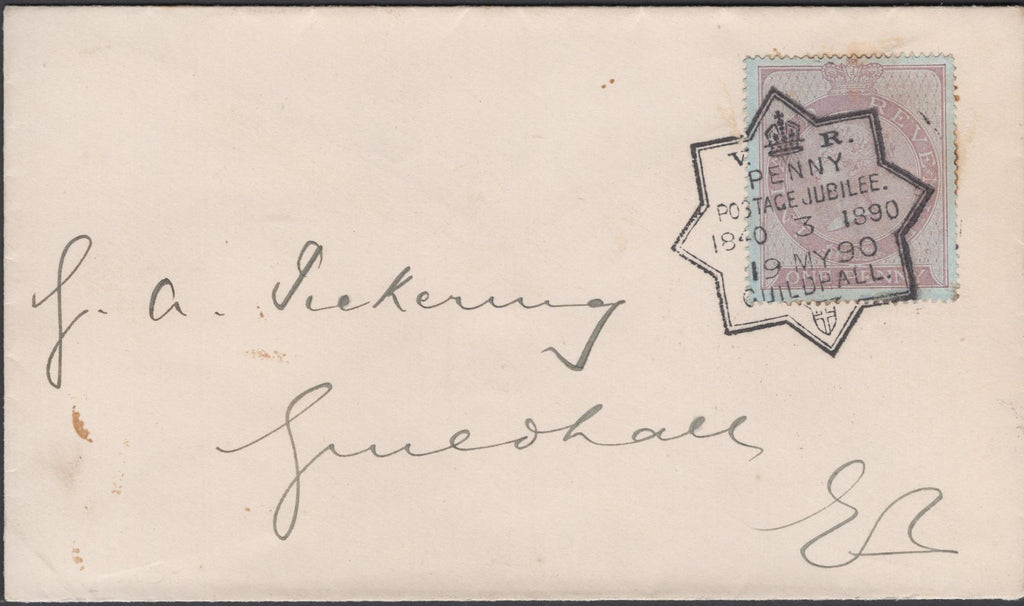 REVE
V. R.
PENNY
POSTAGE JUBILEE.
1840 3 1890
19 MY 90
GUILDHALL.
G. A. Pickering
Guildhall
EC